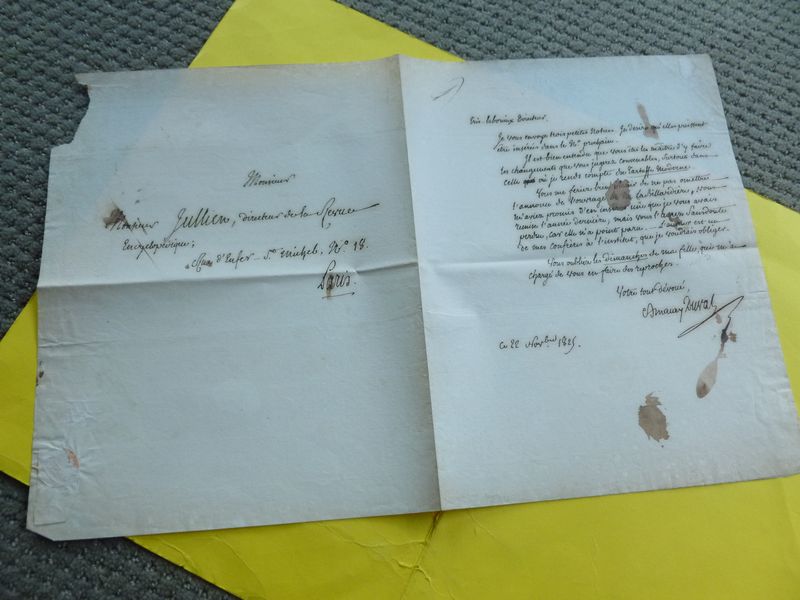 Monsieur
Monsieur Jullien, directeur de la Revue
Encyclopédique;
Rue d'Enfer-St. Michel, No. 18.
Paris.
Très laborieux Directeur,
Je vous envoye trois petites Notices. Je désire qu'elles puissent
être insérées dans le No. prochain.
Il est bien entendu que vous êtes le maître d'y faire
les changemens que vous jugerez convenables, surtout dans
celle où je rends compte du Tartuffe Moderne.
Vous me feriez bien de ne pas omettre
l'annonce de l'ouvrage La Billardière,
m'aviez promis d'en que je vous avais
remise l'année dernière, mais vous l'avez sans doute
perdue, car elle n'a point paru. L'auteur est un
de mes confrères de l'institut, que je voudrais obliger.
Vous oubliez les dimanches de ma fille, mais m'a
chargé de vous en faire des reproches.
Votre tout dévoué,
Amaury Duval
Ce 22 Novbre 1825.